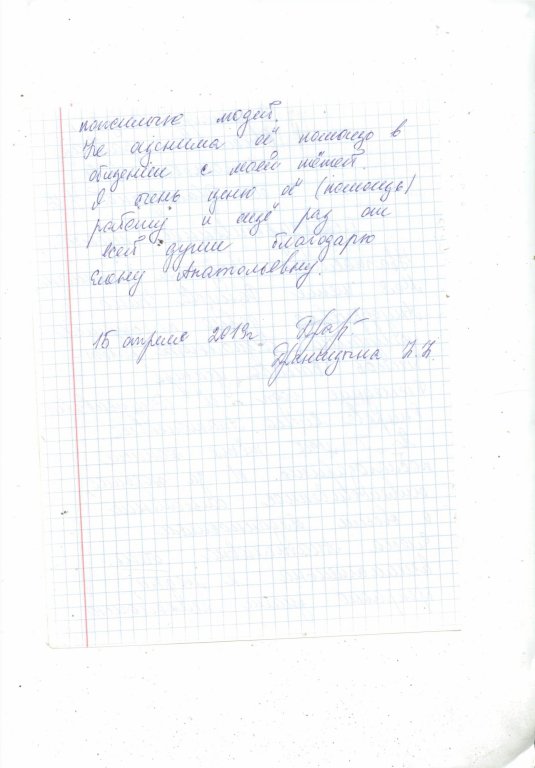 пожилых людей.
Не оценима её помощь в
общении с моей тётей.
Я очень ценю её (помощь)
работу и ещё раз от
всей души благодарю
Елену Анатольевну.
15 апреля 2019г.
Н.Н.